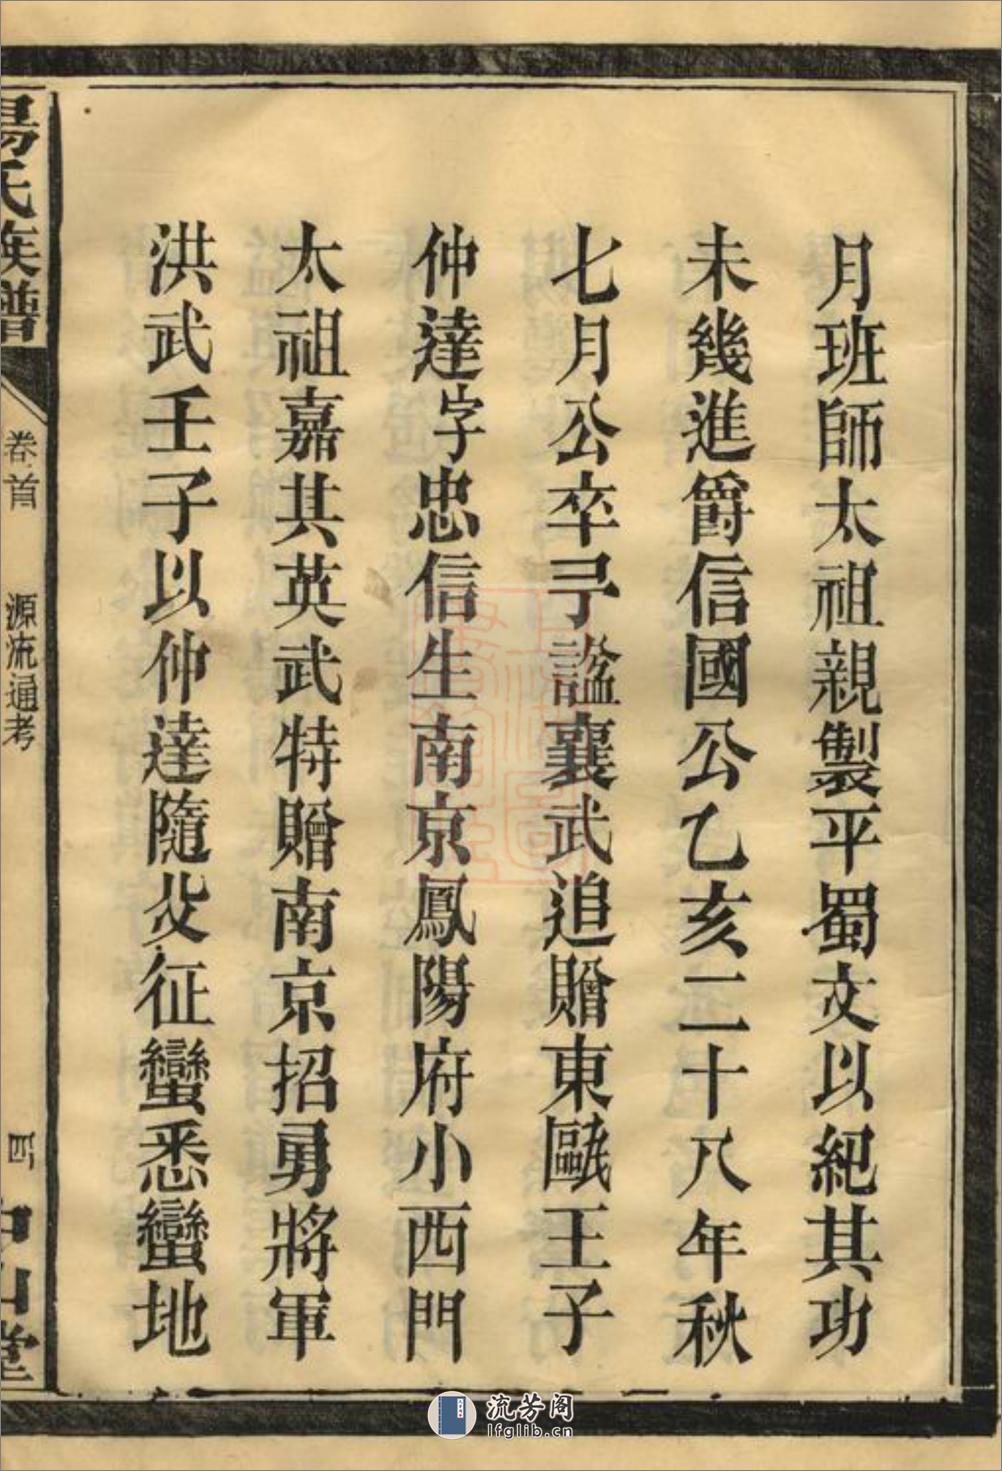 月班師太祖親製平蜀文以紀其功
未幾進爵信國公乙亥二十八年秋
七月公卒予謚襄武追贈東甌王子
仲達字忠信生南京鳳陽府小西門
太祖嘉其英武特贈南京招勇將軍
洪武壬子以仲達隨父征蠻悉蠻地
氏族譜
卷首
源流通考
四
山堂
流芳阁
lfglib.cn